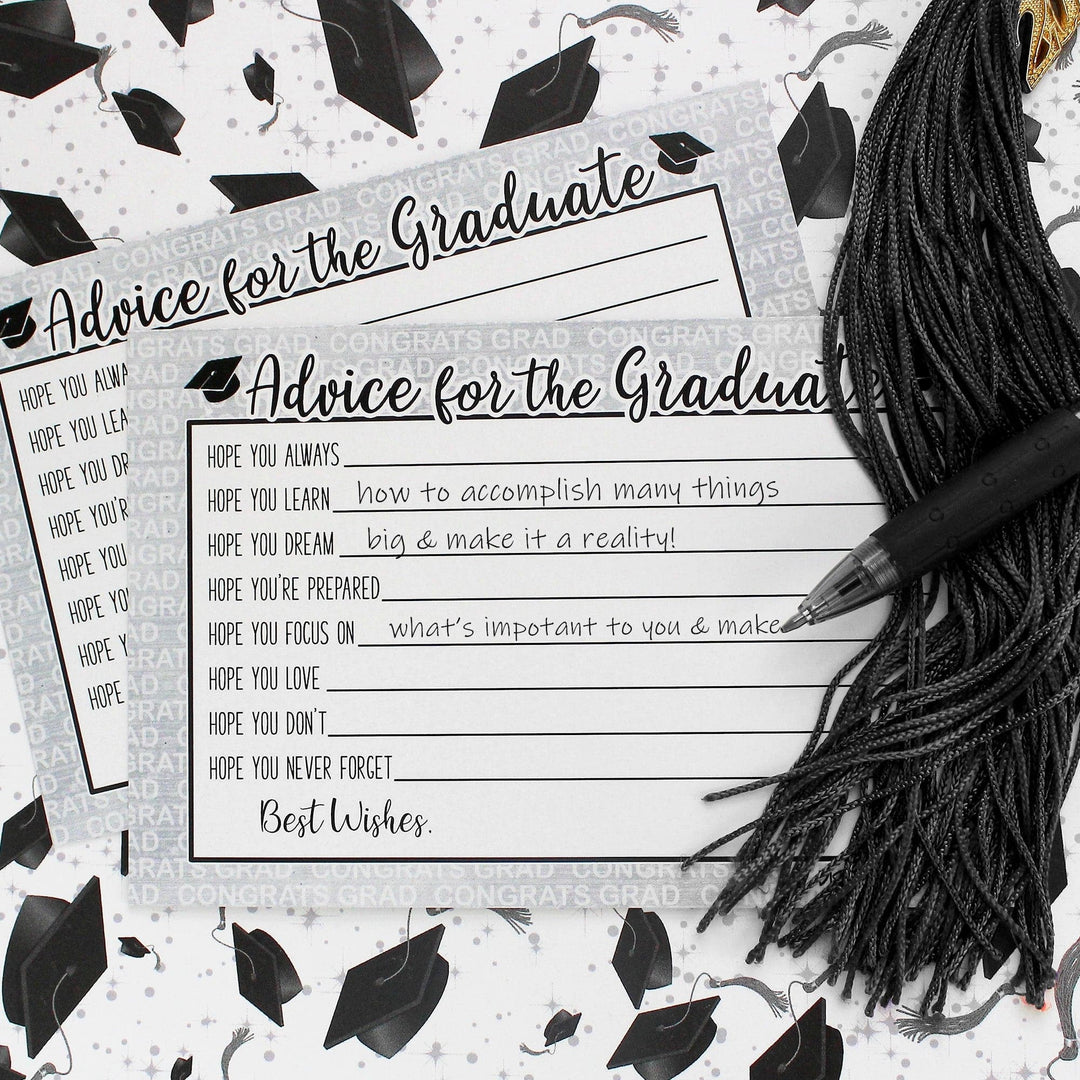 Advice for the Graduate
HOPE YOU
HOPE YOU
HOPE YOU
HOPE YOU'R
HOPE YOU
HOPE YOU
HOPE
HOPE
CONGRATS GRAD CONGRATS GRAD
Advice for the Graduate
HOPE YOU ALWAYS
HOPE YOU LEARN how to accomplish many things
HOPE YOU DREAM big & make it a reality!
HOPE YOU'RE PREPARED
HOPE YOU FOCUS ON what's impotant to you & make
HOPE YOU LOVE
HOPE YOU DON'T
HOPE YOU NEVER FORGET
Best Wishes,
CONGRATS GRAD CONGRATS GRAD
CONGRATS GRAD CONGRATS GRAD